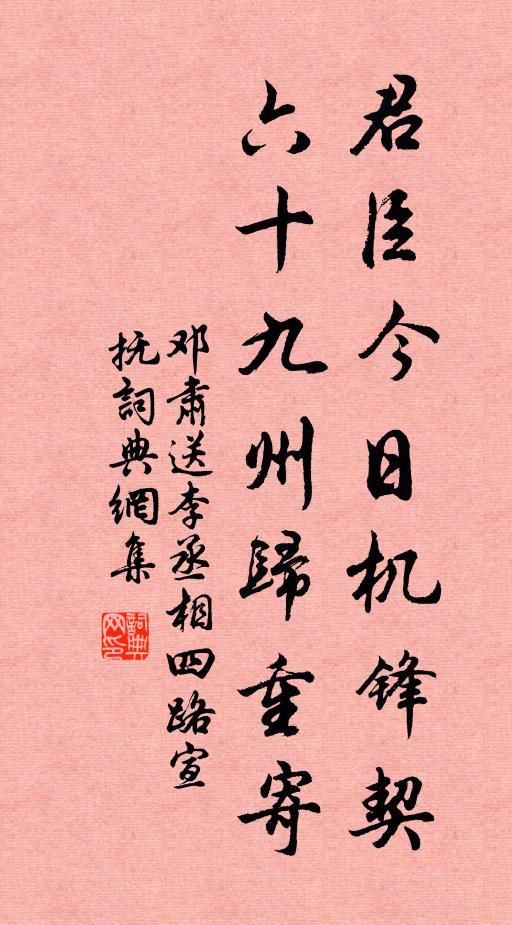 君臣今日机锋契
六十九州歸重寄
邓肃送李丞相四路宣
抚詞典網集
詞典网印